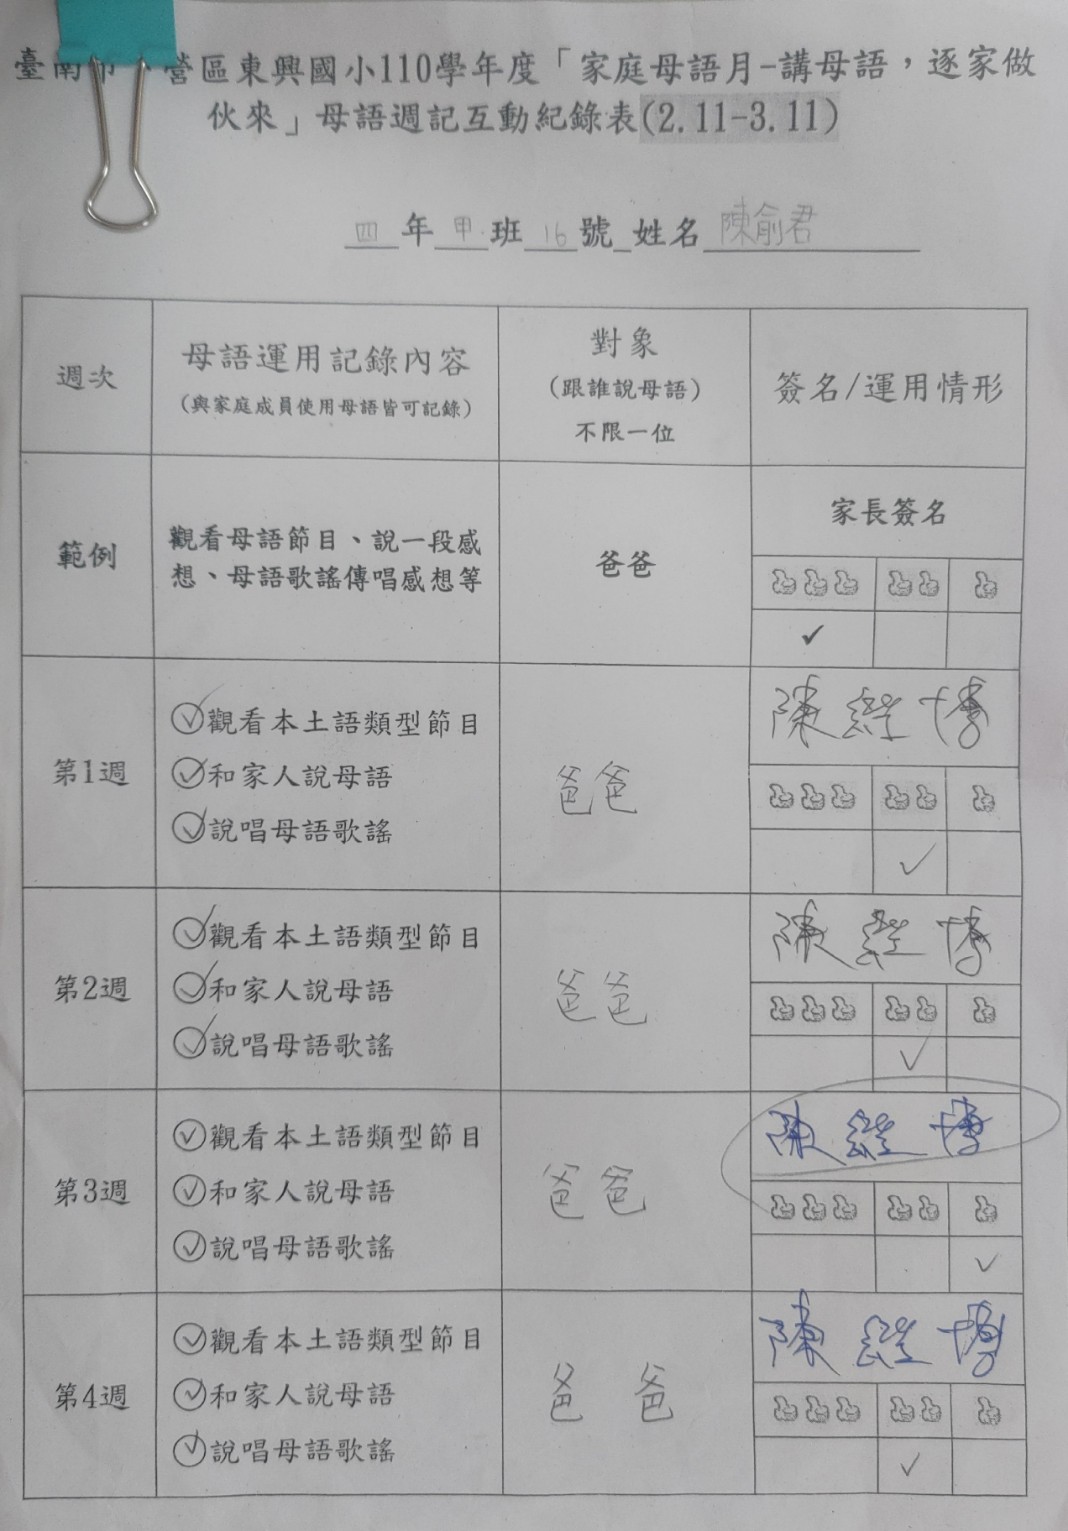 臺南市 營區東興國小110學年度「家庭母語月-講母語，逐家做
伙來」母語週記互動紀錄表(2.11-3.11)
四年甲班16號 姓名 陳俞君
週次
母語運用記錄內容
(與家庭成員使用母語皆可記錄)
對象
(跟誰說母語)
不限一位
簽名/運用情形
範例
觀看母語節目、說一段感
想、母語歌謠傳唱感想等
爸爸
家長簽名
第1週
觀看本土語類型節目
和家人說母語
說唱母語歌謠
爸爸
陳
博
第2週
觀看本土語類型節目
和家人說母語
說唱母語歌謠
爸爸
陳
博
第3週
觀看本土語類型節目
和家人說母語
說唱母語歌謠
爸爸
陳
博
第4週
觀看本土語類型節目
和家人說母語
說唱母語歌謠
爸爸
陳
博